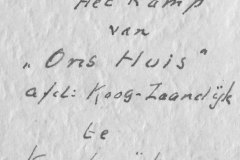 Het Kamp
van
„Ons Huis"
afd: Koog-Zaandijk
te